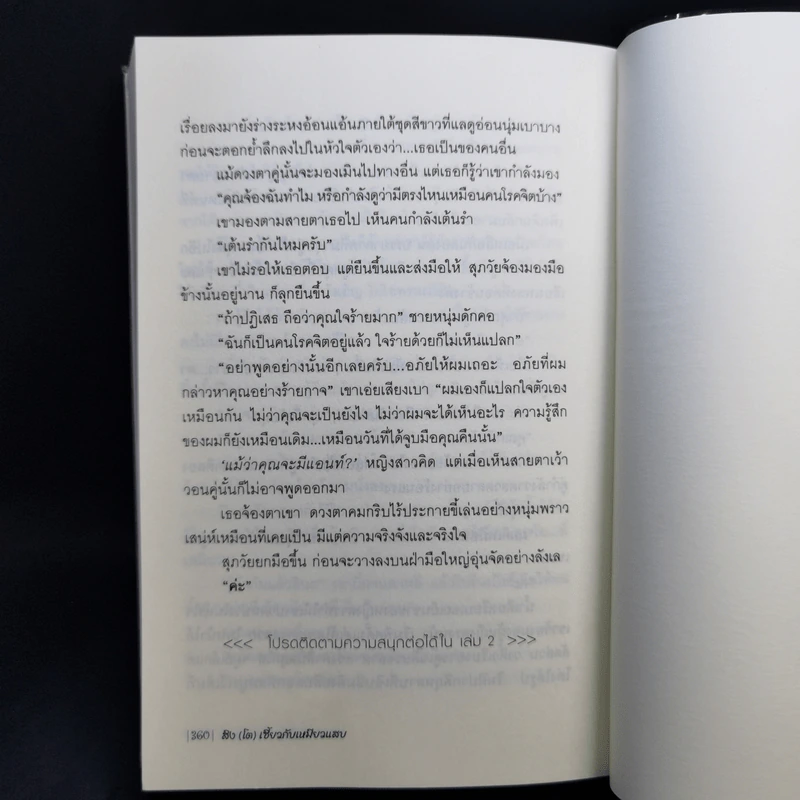 เรื่อยลงมายังร่างระหงอ้อนแอ้นภายใต้ชุดสีขาวที่แลดูอ่อนนุ่มเบาบาง
ก่อนจะตอกย้ำลึกลงไปในหัวใจตัวเองว่า...เธอเป็นของคนอื่น
แม้ดวงตาคู่นั้นจะมองเมินไปทางอื่น แต่เธอก็รู้ว่าเขากำลังมอง
“คุณจ้องฉันทำไม หรือกำลังดูว่ามีตรงไหนเหมือนคนโรคจิตบ้าง”
เขามองตามสายตาเธอไป เห็นคนกำลังเต้นรำ
“เต้นรำกันไหมครับ”
เขาไม่รอให้เธอตอบ แต่ยืนขึ้นและส่งมือให้ สุภวัยจ้องมองมือ
ข้างนั้นอยู่นาน ก็ลุกยืนขึ้น
“ถ้าปฏิเสธ ถือว่าคุณใจร้ายมาก” ชายหนุ่มดักคอ
“ฉันก็เป็นคนโรคจิตอยู่แล้ว ใจร้ายด้วยก็ไม่เห็นแปลก”
“อย่าพูดอย่างนั้นอีกเลยครับ...อภัยให้ผมเถอะ อภัยที่ผม
กล่าวหาคุณอย่างร้ายกาจ” เขาเอ่ยเสียงเบา “ผมเองก็แปลกใจตัวเอง
เหมือนกัน ไม่ว่าคุณจะเป็นยังไง ไม่ว่าผมจะได้เห็นอะไร ความรู้สึก
ของผมก็ยังเหมือนเดิม...เหมือนวันที่ได้จูบมือคุณคืนนั้น”
‘แม้ว่าคุณจะมีแอนท์?’ หญิงสาวคิด แต่เมื่อเห็นสายตาเว้า
วอนคู่นั้นก็ไม่อาจพูดออกมา
เธอจ้องตาเขา ดวงตาคมกริบไร้ประกายขี้เล่นอย่างหนุ่มพราว
เสน่ห์เหมือนที่เคยเป็น มีแต่ความจริงจังและจริงใจ
สุภวัยยกมือขึ้น ก่อนจะวางลงบนฝ่ามือใหญ่อุ่นจัดอย่างลังเล
“ค่ะ”
<<< โปรดติดตามความสนุกต่อได้ใน เล่ม 2 >>>
|360| สิง (โต) เชี้ยวกับเหมียวแสบ